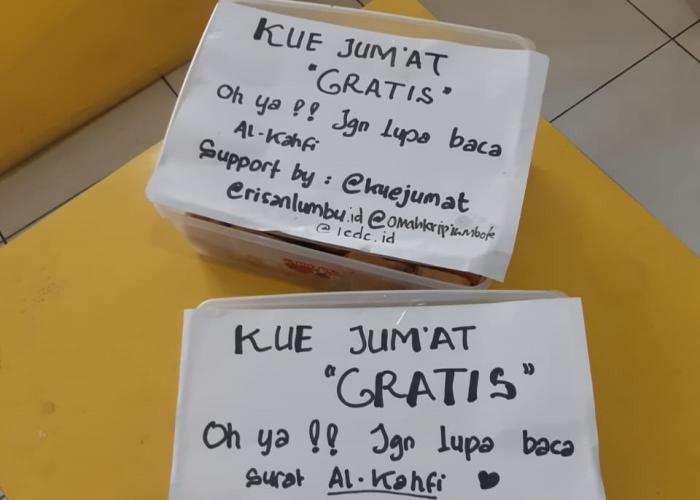 KUE JUM'AT
"GRATIS"
Oh ya !! Jgn lupa baca
AL-Kahfi
Support by : @kuejumat
@risanlumbu.id @omahkripiumbofe
@icdc.id
KUE JUM'AT
"GRATIS"
Oh ya !! Jgn lupa baca
surat Al-Kahfi